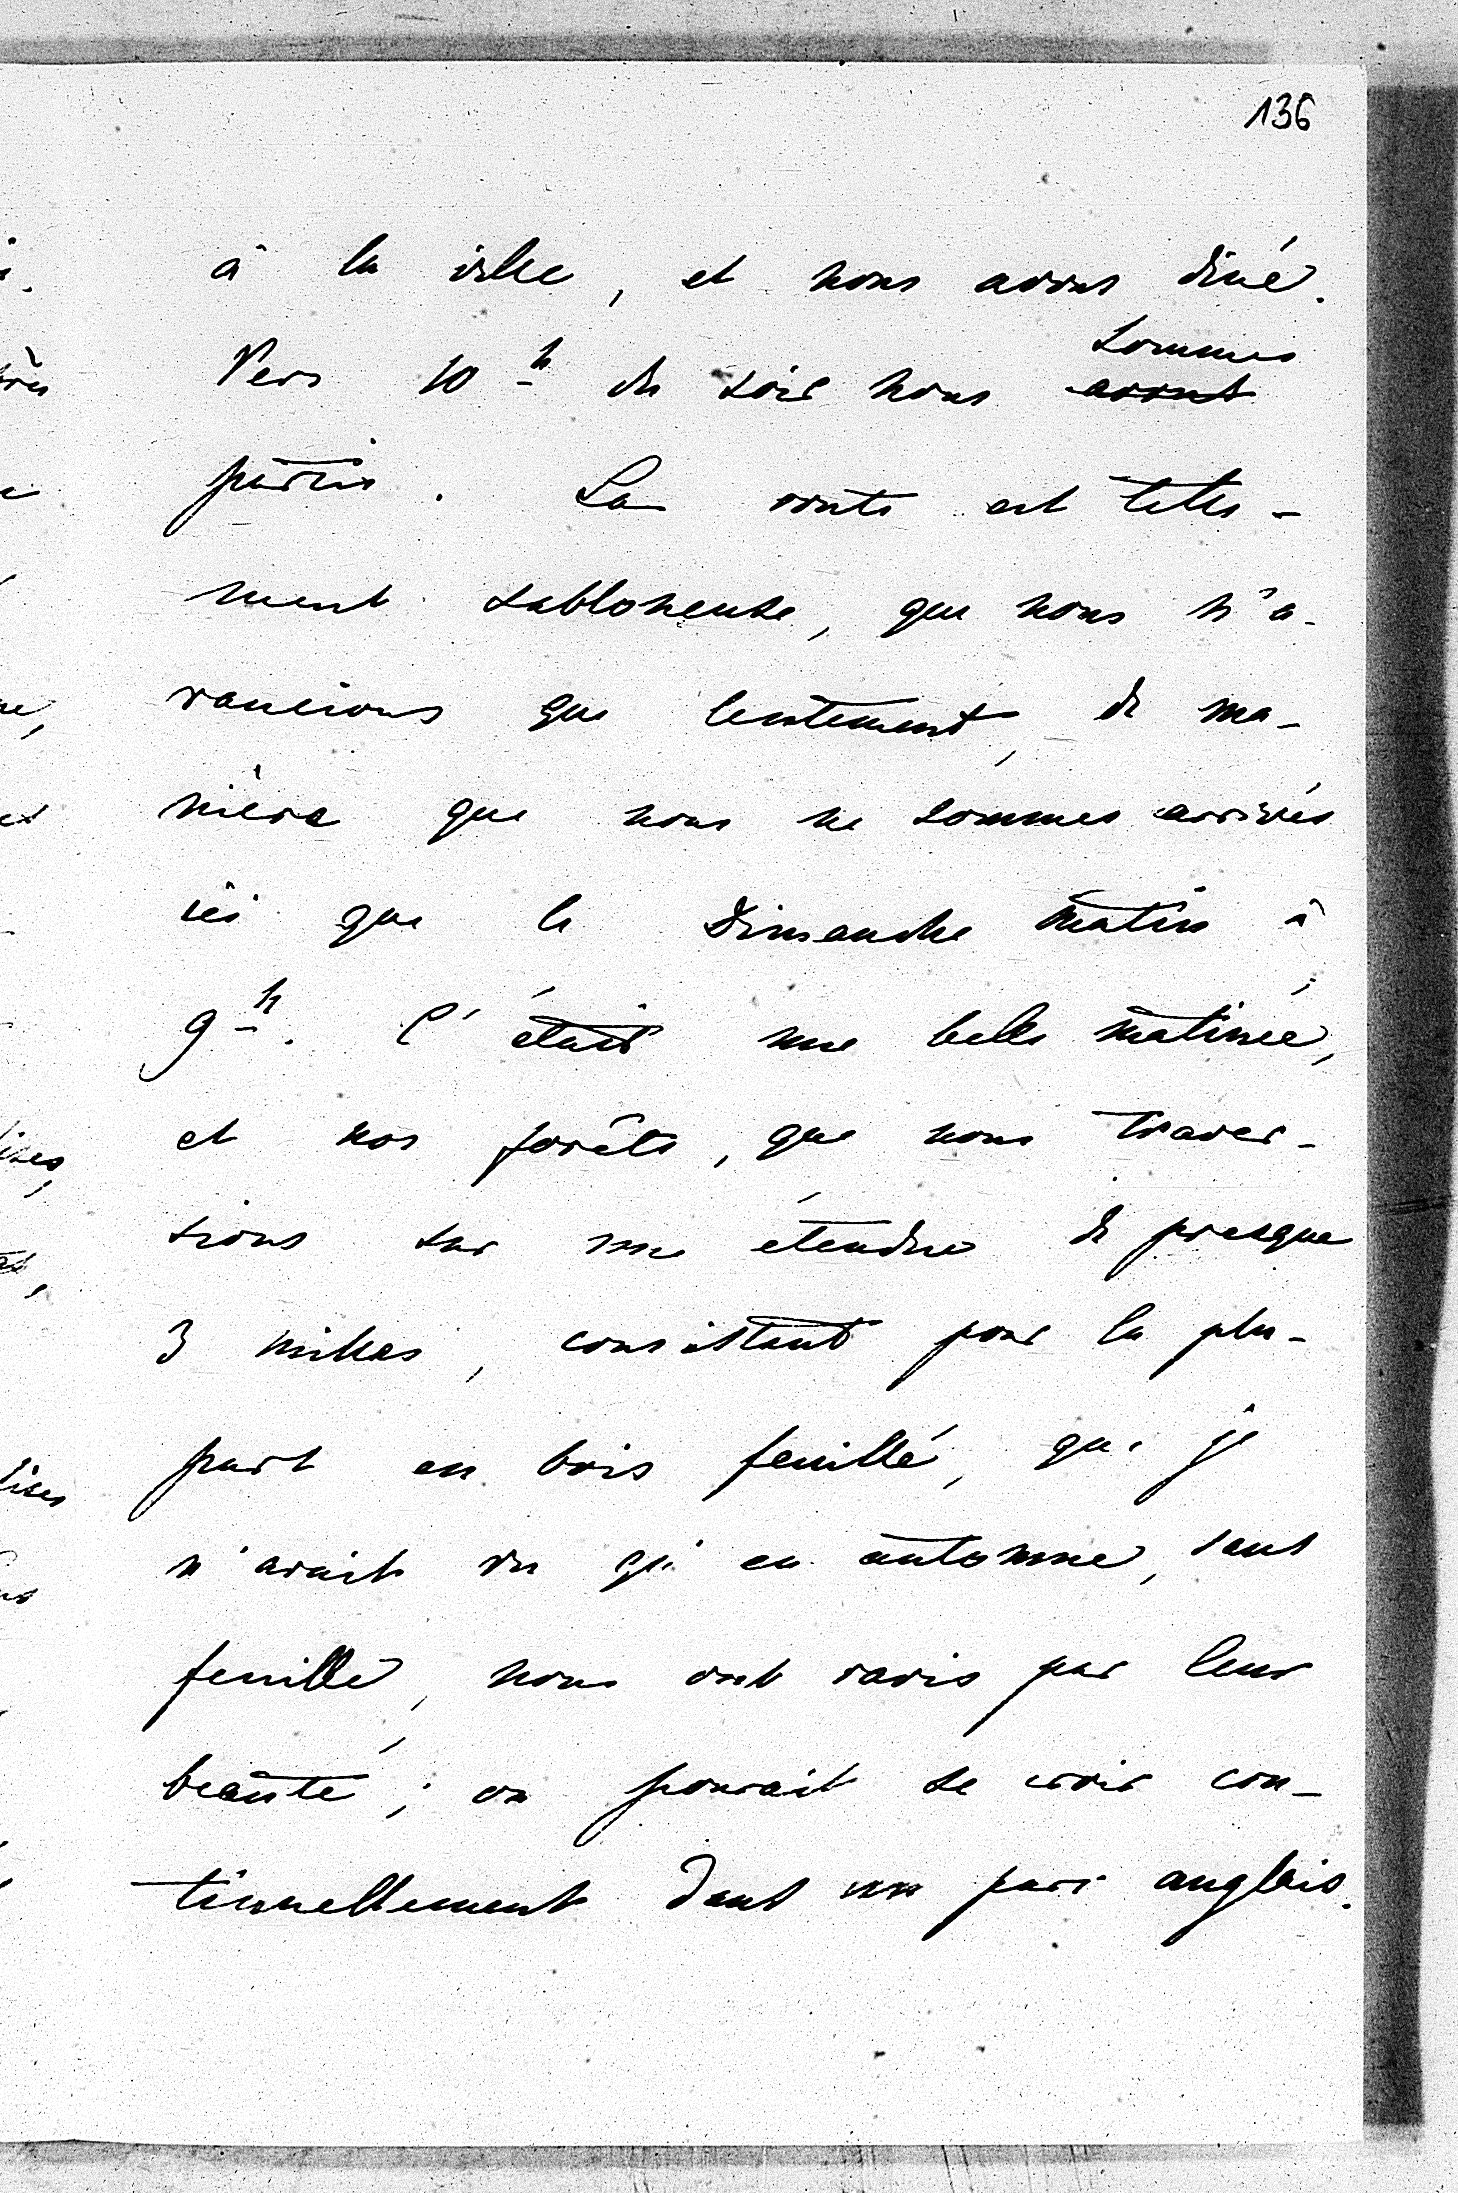 136
à la ville, et nous avons diné.
Vers 10 h du soir nous sommes avont
partis. La route est telle-
ment sabloneuse, que nous n'a-
vancions que lentement, de ma-
nière que nous ne sommes arrivés
ici que le Dimanche matin à
9 h. C'était une belle matinée,
et nos forêts, que nous traver-
sions sur une étendue de presque
3 milles, consistant pour la plu-
part en bois feuillé, que je
n'avait vu qu'en automne, sans
feuille, nous ont ravis par leur
beauté; on pourait se croir con-
tinuellement dans un parc anglais.